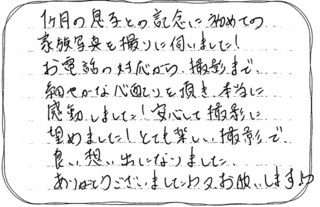 1ヶ月の息子との記念に初めての
家族写真を撮りに伺いました!
お電話の対応から、撮影まで、
細やかな心配りを頂き、本当に
感動しました!安心して撮影に
望めました!とても楽しい撮影で
良い想い出になりました。
ありがとうございました。又、お願いします♪